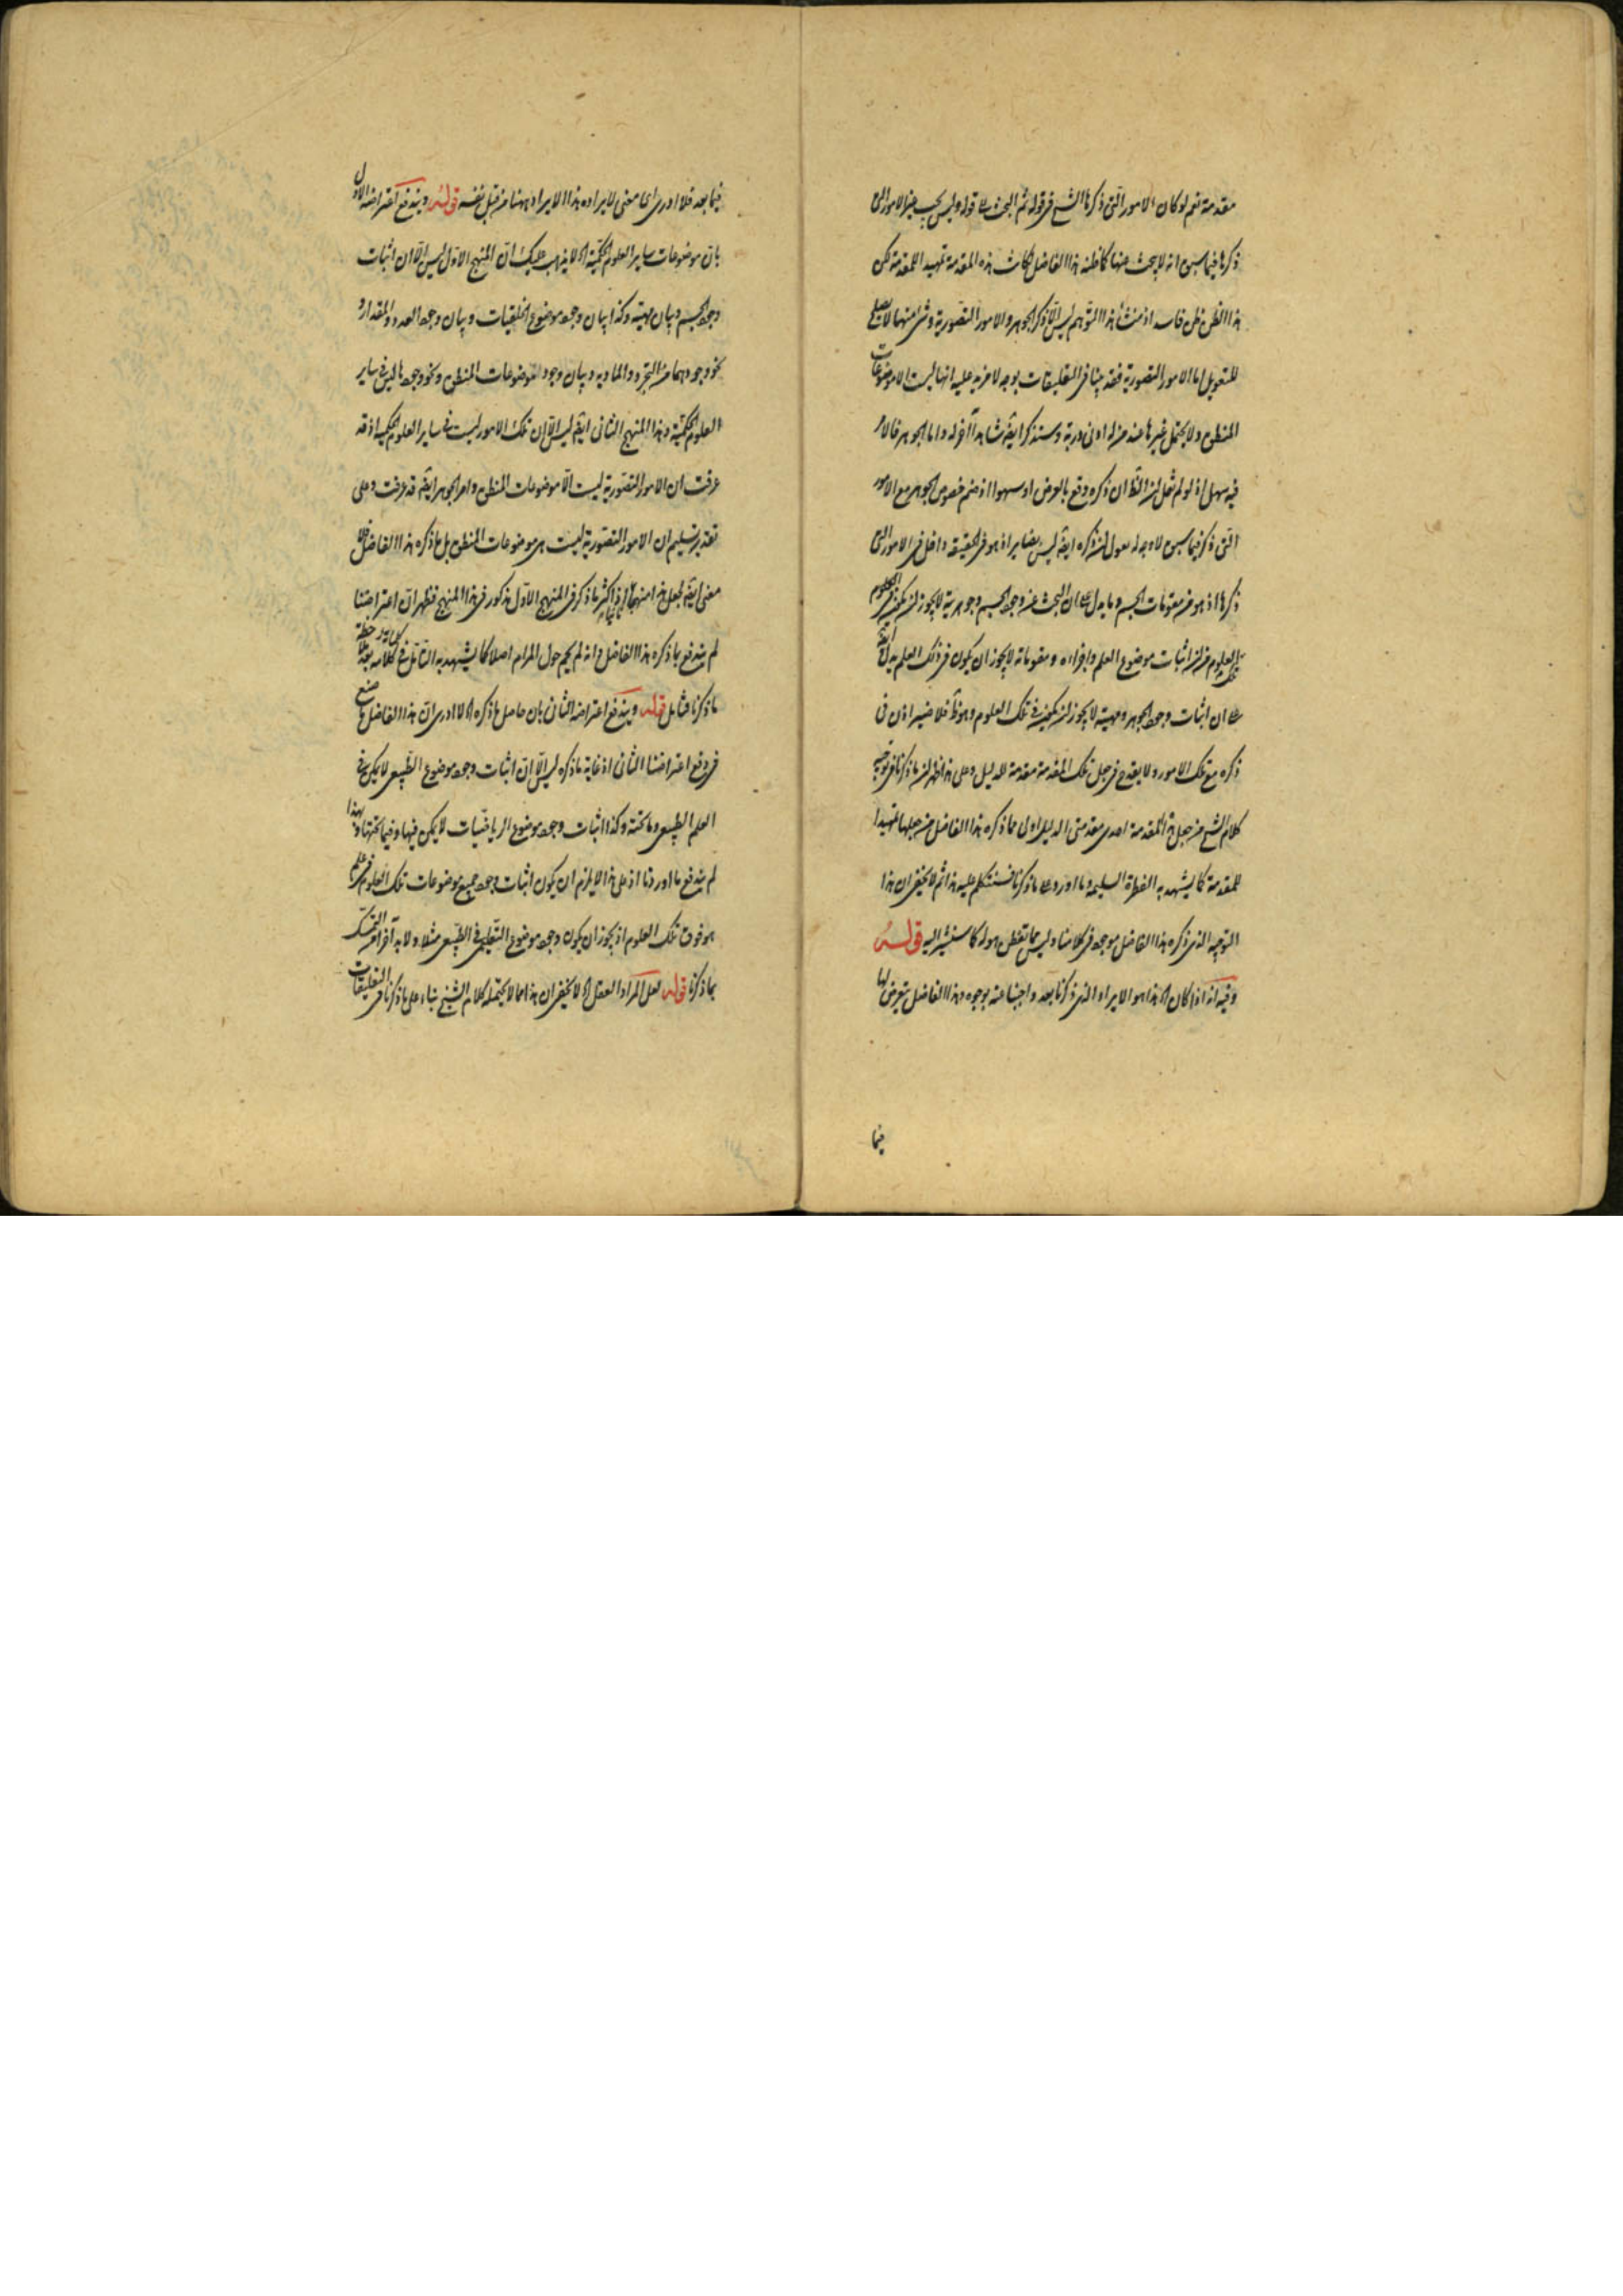 مقدمة نعم لو كان الامور التى ذكرها الشيخ فى قوله ثم البحث الى قوله وليس يجب الامور التى
ذكرها فيما سبق انه لا يبحث عنها كما ظنه هذا الفاضل لكانت هذه المقدمة تمهيد المقدمة لكن
هذا الظن ظن فاسد اذ منشأ هذا التوهم ليس الا ذكر الجوهر والامور التصورية وشئ منهما لا يصلح
للتعويل اما الامور التصورية فقد بينا فى التعليقات بوجه لا مزيد عليه انها ليست الا موضوعات
المنطق ولا يحتمل غيرها عند من له ادنى دربة وستذكر ايضا شاهدا آخر له واما الجوهر فالامر
فيه سهل اذ لو لم نقل ان ذكره وقع بالعرض او سهوا اذ ضم خصوص الجوهر مع الامور
التى ذكر فيما سبق لا وجه له نقول ان ذكره ايضا ليس بضاير اذ هو فى الحقيقة داخل فى الامور التى
ذكرها اذ هو من مقومات الجسم وما يدل على ان البحث عن وجود الجسم وجوهريته لا يجوز ان يكون فى العلوم
العلوم من ان اثبات موضوع العلم واجزاءه ومقوماته لا يجوز ان يكون فى ذلك العلم يدل ايضا
على ان اثبات وجود الجوهر ومهيته لا يجوز ان يكون فى تلك العلوم وهو ظ فلا ضير اذن فى
ذكره مع تلك الامور ولا يقدح فى جعل تلك المقدمة مقدمة للدليل وعلى هذا ظهر ان ما ذكرنا فى توجيه
كلام الشيخ من جعل هذه المقدمة احدى مقدمتى الدليل اولى مما ذكره هذا الفاضل من جعلها تمهيدا
للمقدمة كما يشهد به الفطرة السليمة وما اورد على ما ذكرنا فسنتكلم عليه هذا ثم لا يخفى ان هذا
التوجيه الذى ذكره هذا الفاضل موجود فى كلامنا وليس مما تفطن هو له كما سنشير اليه قوله
وفيه انه اذا كان اه هذا هو الايراد الذى ذكرنا بعد واجبنا عنه بوجوه وهذا الفاضل يتعرض لها
فيما
فيما بعد فلا ادرى اى معنى لايراده هذا الايراد ههنا من قبل نفسه قوله ويندفع اعتراضه الاول
بان موضوعات ساير العلوم الحكمية اه لا يذهب عليك ان المنهج الاول ليس الا ان اثبات
وجود الجسم وبيان مهيته وكذا بيان وجود موضوع الخلقيات وبيان وجود العدد والمقدار و
نحو وجودهما من التجرد والمادية وبيان وجود موضوعات المنطق ونحو وجودها ليس فى ساير
العلوم الحكمية وهذا المنهج الثانى ايضا ليس الا ان تلك الامور ليست فى ساير العلوم الحكمية اذ قد
عرفت ان الامور التصورية ليست الا موضوعات المنطق وامر الجوهر ايضا قد عرفت وعلى
تقدير تسليم ان الامور التصورية ليست هى موضوعات المنطق بل ما ذكره هذا الفاضل فلا
معنى ايضا لجعل هذا منهجا اكثر ما ذكر فى المنهج الاول مذكور فى هذا المنهج فظهر ان اعتراضنا
لم يندفع بما ذكره هذا الفاضل وانه لم يحم حول المرام اصلا كما يشهد به التأمل فى كلامه بعد ملاحظة
ما ذكرنا فتأمل قوله ويندفع اعتراضه الثانى بان حاصل ما ذكره اه لا ادرى ان هذا الفاضل ما صنع
فى دفع اعتراضنا الثانى اذ غاية ما ذكره ليس الا ان اثبات وجود موضوع الطبيعى لا يمكن فى
العلم الطبيعى وما تحته وكذا اثبات وجود موضوع الرياضيات لا يمكن فيها وفيما تحتها وبهذا
لم يندفع ما اوردنا اذ على هذا لا يلزم ان يكون اثبات وجود جميع موضوعات تلك العلوم فى علم
هو فوق تلك العلوم اذ يجوز ان يكون وجود موضوع التعليمى فى الطبيعى مثلا ولا بد آخر الامر التمسك
بما ذكرنا قوله لعل المراد العقل اه لا يخفى ان هذا مما لا يحتمله كلام الشيخ بناء على ما ذكرنا فى التعليقات